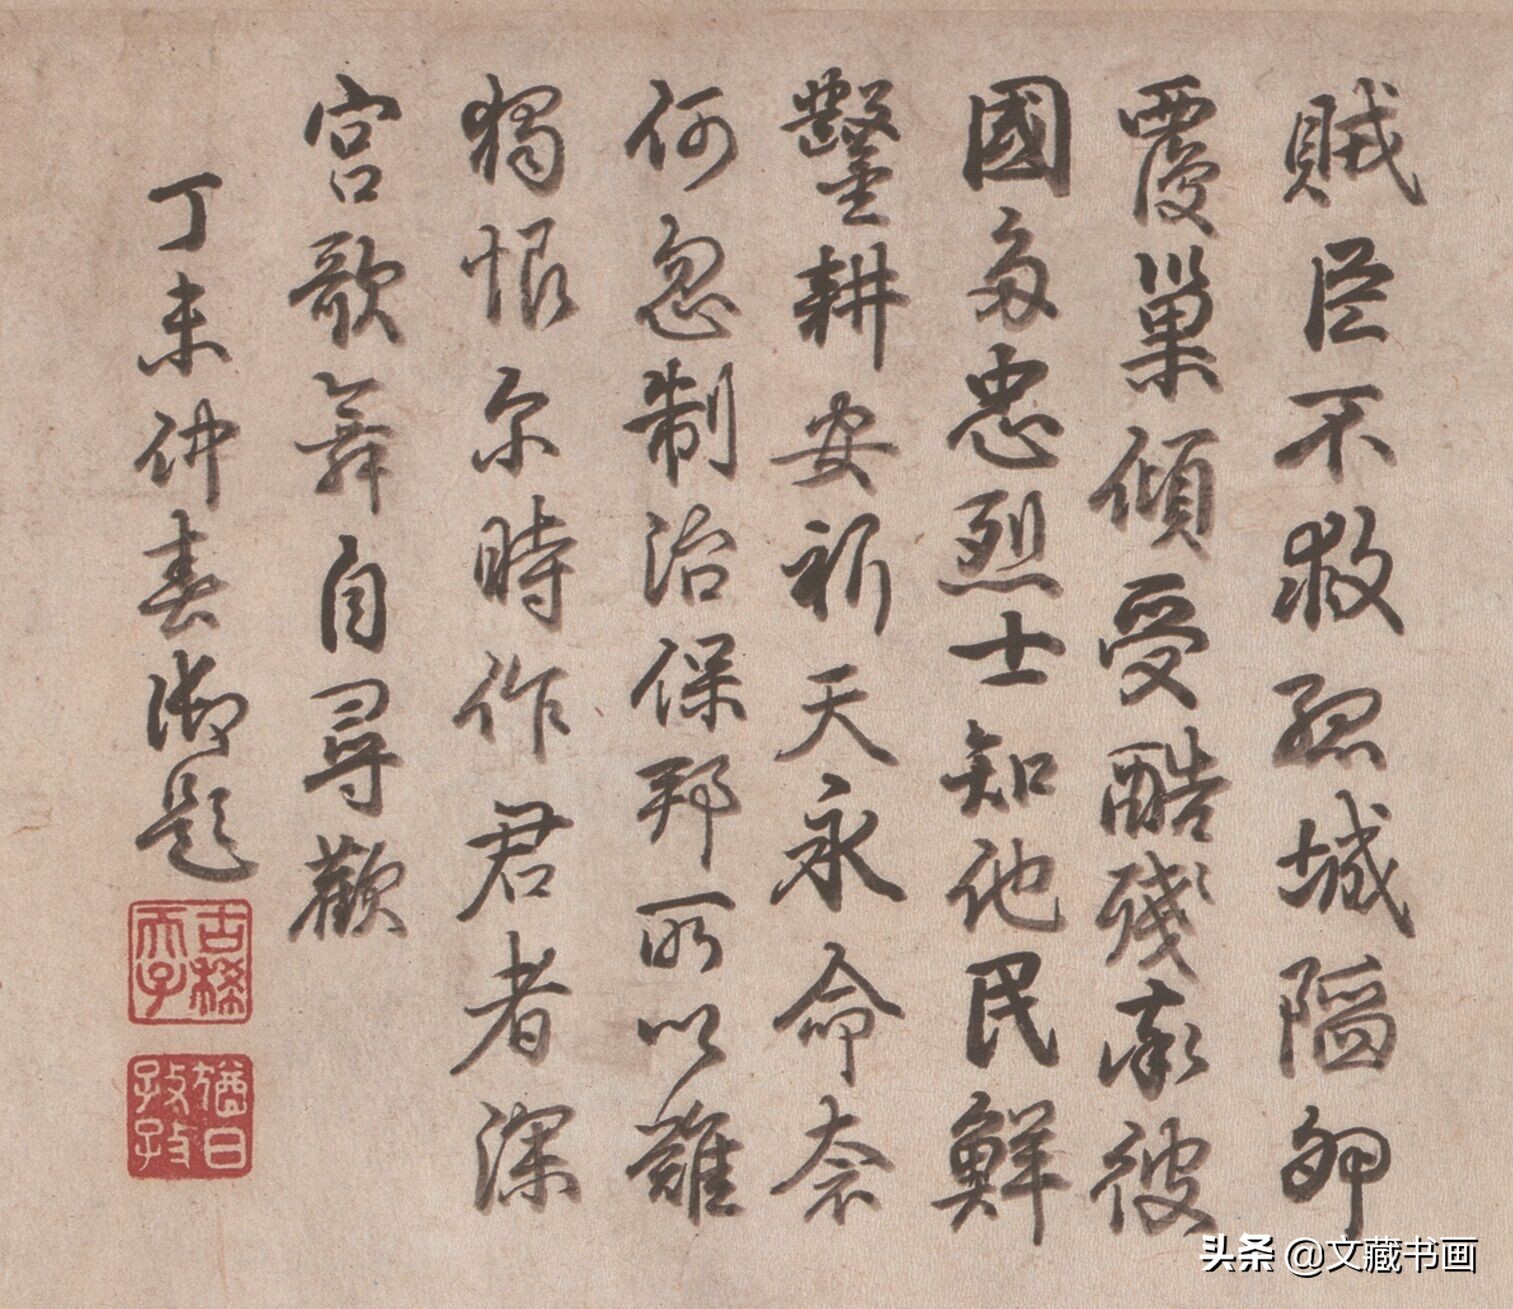 賊臣不救孤城陷卵
覆巢傾受酷殘彼
國多忠烈士知他民鮮
鑿耕安祈天永命奈
何忽制治保邦所以難
獨恨尔時作君者深
宮歌舞自尋歡
丁未仲春御題
古稀天子
猶日孜孜
头条 @文藏书画